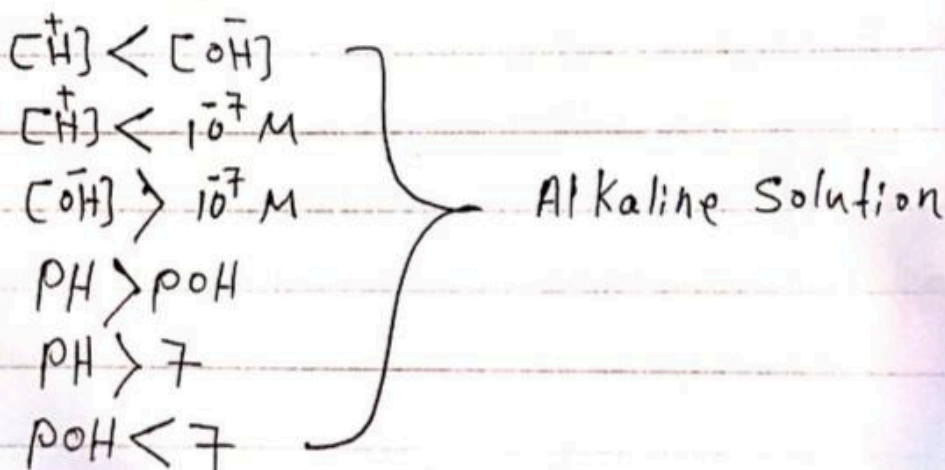 [H⁺] < [OH⁻]
[H⁺] < 10⁻⁷ M
[OH⁻] > 10⁻⁷ M
PH > POH
PH > 7
POH < 7
Alkaline Solution